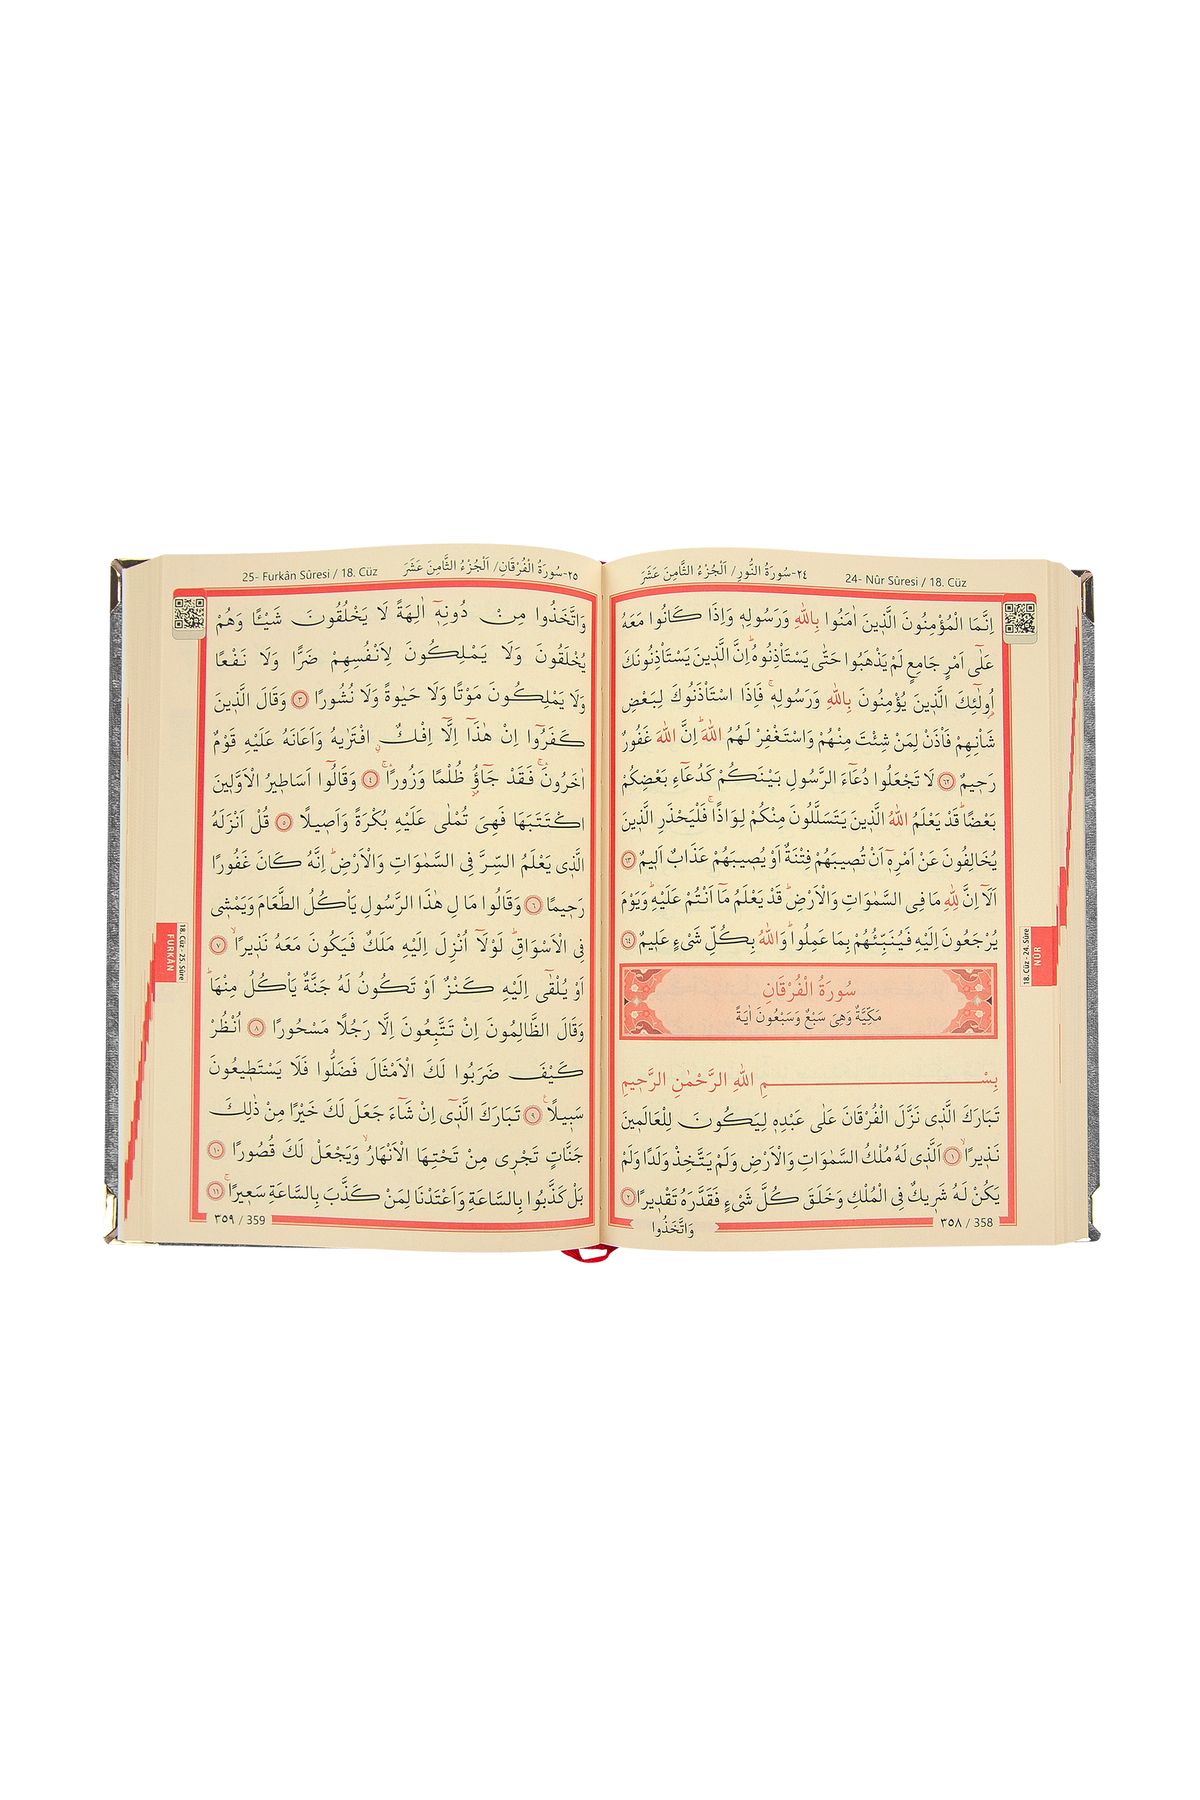 ٢٤-سُورَةُ النُّورِ/ اَلْجُزْءُ الثَّامِنَ عَشَرَ
24- Nûr Sûresi / 18. Cüz
اِنَّمَا الْمُؤْمِنُونَ الَّذٖينَ اٰمَنُوا بِاللّٰهِ وَرَسُولِهٖ وَاِذَا كَانُوا مَعَهُ
عَلٰٓى اَمْرٍ جَامِعٍ لَمْ يَذْهَبُوا حَتّٰى يَسْتَاْذِنُوهُۜ اِنَّ الَّذٖينَ يَسْتَاْذِنُونَكَ
اُو۬لٰٓئِكَ الَّذٖينَ يُؤْمِنُونَ بِاللّٰهِ وَرَسُولِهٖۚ فَاِذَا اسْتَاْذَنُوكَ لِبَعْضِ
شَاْنِهِمْ فَاْذَنْ لِمَنْ شِئْتَ مِنْهُمْ وَاسْتَغْفِرْ لَهُمُ اللّٰهَۜ اِنَّ اللّٰهَ غَفُورٌ
رَحٖيمٌ ٦٢ لَا تَجْعَلُوا دُعَٓاءَ الرَّسُولِ بَيْنَكُمْ كَدُعَٓاءِ بَعْضِكُمْ
بَعْضًاۜ قَدْ يَعْلَمُ اللّٰهُ الَّذٖينَ يَتَسَلَّلُونَ مِنْكُمْ لِوَاذًاۚ فَلْيَحْذَرِ الَّذٖينَ
يُخَالِفُونَ عَنْ اَمْرِهٖٓ اَنْ تُصٖيبَهُمْ فِتْنَةٌ اَوْ يُصٖيبَهُمْ عَذَابٌ اَلٖيمٌ ٦٣
اَلَٓا اِنَّ لِلّٰهِ مَا فِى السَّمٰوَاتِ وَالْاَرْضِۜ قَدْ يَعْلَمُ مَٓا اَنْتُمْ عَلَيْهِۜ وَيَوْمَ
يُرْجَعُونَ اِلَيْهِ فَيُنَبِّئُهُمْ بِمَا عَمِلُواۜ وَاللّٰهُ بِكُلِّ شَىْءٍ عَلٖيمٌ ٦٤
سُورَةُ الْفُرْقَانِ
مَكِّيَّةٌ وَهِىَ سَبْعٌ وَسَبْعُونَ اٰيَةً
بِسْمِ اللّٰهِ الرَّحْمٰنِ الرَّحٖيمِ
تَبَارَكَ الَّذٖى نَزَّلَ الْفُرْقَانَ عَلٰى عَبْدِهٖ لِيَكُونَ لِلْعَالَمٖينَ
نَذٖيرًاۙ ١ اَلَّذٖى لَهُ مُلْكُ السَّمٰوَاتِ وَالْاَرْضِ وَلَمْ يَتَّخِذْ وَلَدًا وَلَمْ
يَكُنْ لَهُ شَرٖيكٌ فِى الْمُلْكِ وَخَلَقَ كُلَّ شَىْءٍ فَقَدَّرَهُ تَقْدٖيرًا ٢
٣٥٨ / 358
وَاتَّخَذُوا
18. Cüz - 24. Sûre
NÛR
٢٥-سُورَةُ الْفُرْقَانِ/ اَلْجُزْءُ الثَّامِنَ عَشَرَ
25- Furkân Sûresi / 18. Cüz
وَاتَّخَذُوا مِنْ دُونِهٖٓ اٰلِهَةً لَا يَخْلُقُونَ شَيْـًٔا وَهُمْ
يُخْلَقُونَ وَلَا يَمْلِكُونَ لِاَنْفُسِهِمْ ضَرًّا وَلَا نَفْعًا
وَلَا يَمْلِكُونَ مَوْتًا وَلَا حَيٰوةً وَلَا نُشُورًا ٣ وَقَالَ الَّذٖينَ
كَفَرُٓوا اِنْ هٰذَٓا اِلَّٓا اِفْكٌۨ افْتَرٰيهُ وَاَعَانَهُ عَلَيْهِ قَوْمٌ
اٰخَرُونَۚ فَقَدْ جَٓاؤُ۫ ظُلْمًا وَزُورًاۚ ٤ وَقَالُٓوا اَسَاطٖيرُ الْاَوَّلٖينَ
اكْتَتَبَهَا فَهِىَ تُمْلٰى عَلَيْهِ بُكْرَةً وَاَصٖيلًا ٥ قُلْ اَنْزَلَهُ
الَّذٖى يَعْلَمُ السِّرَّ فِى السَّمٰوَاتِ وَالْاَرْضِۜ اِنَّهُ كَانَ غَفُورًا
رَحٖيمًا ٦ وَقَالُوا مَالِ هٰذَا الرَّسُولِ يَاْكُلُ الطَّعَامَ وَيَمْشٖى
فِى الْاَسْوَاقِۜ لَوْلَٓا اُنْزِلَ اِلَيْهِ مَلَكٌ فَيَكُونَ مَعَهُ نَذٖيرًاۙ ٧
اَوْ يُلْقٰٓى اِلَيْهِ كَنْزٌ اَوْ تَكُونُ لَهُ جَنَّةٌ يَاْكُلُ مِنْهَاۜ
وَقَالَ الظَّالِمُونَ اِنْ تَتَّبِعُونَ اِلَّا رَجُلًا مَسْحُورًا ٨ اُنْظُرْ
كَيْفَ ضَرَبُوا لَكَ الْاَمْثَالَ فَضَلُّوا فَلَا يَسْتَطٖيعُونَ
سَبٖيلًاۚ ٩ تَبَارَكَ الَّذٖٓى اِنْ شَٓاءَ جَعَلَ لَكَ خَيْرًا مِنْ ذٰلِكَ
جَنَّاتٍ تَجْرٖى مِنْ تَحْتِهَا الْاَنْهَارُۙ وَيَجْعَلْ لَكَ قُصُورًا ١٠
بَلْ كَذَّبُوا بِالسَّاعَةِ وَاَعْتَدْنَا لِمَنْ كَذَّبَ بِالسَّاعَةِ سَعٖيرًاۚ ١١
٣٥٩ / 359
18. Cüz - 25. Sûre
FURKÂN